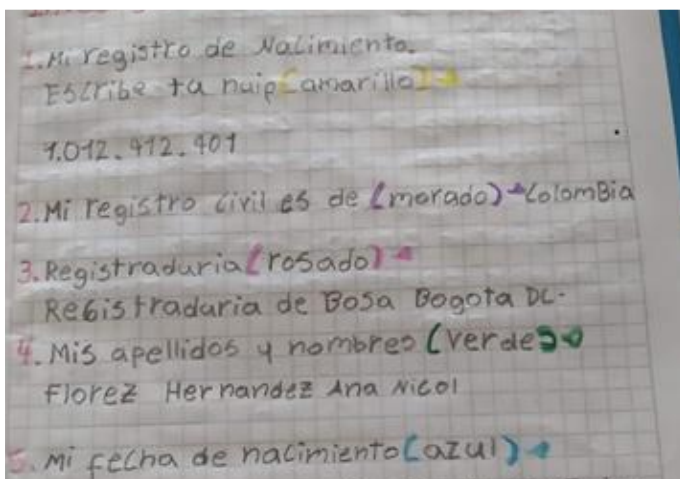 1. Mi registro de Nacimiento.
Escribe tu nuip (amarillo)
1.012.912.901
2. Mi registro civil es de (morado) Colombia
3. Registraduria (rosado)
Registraduria de Bosa Bogota DC.
4. Mis apellidos y nombres (verde)
Florez Hernandez Ana Nicol
5. Mi fecha de nacimiento (azul)